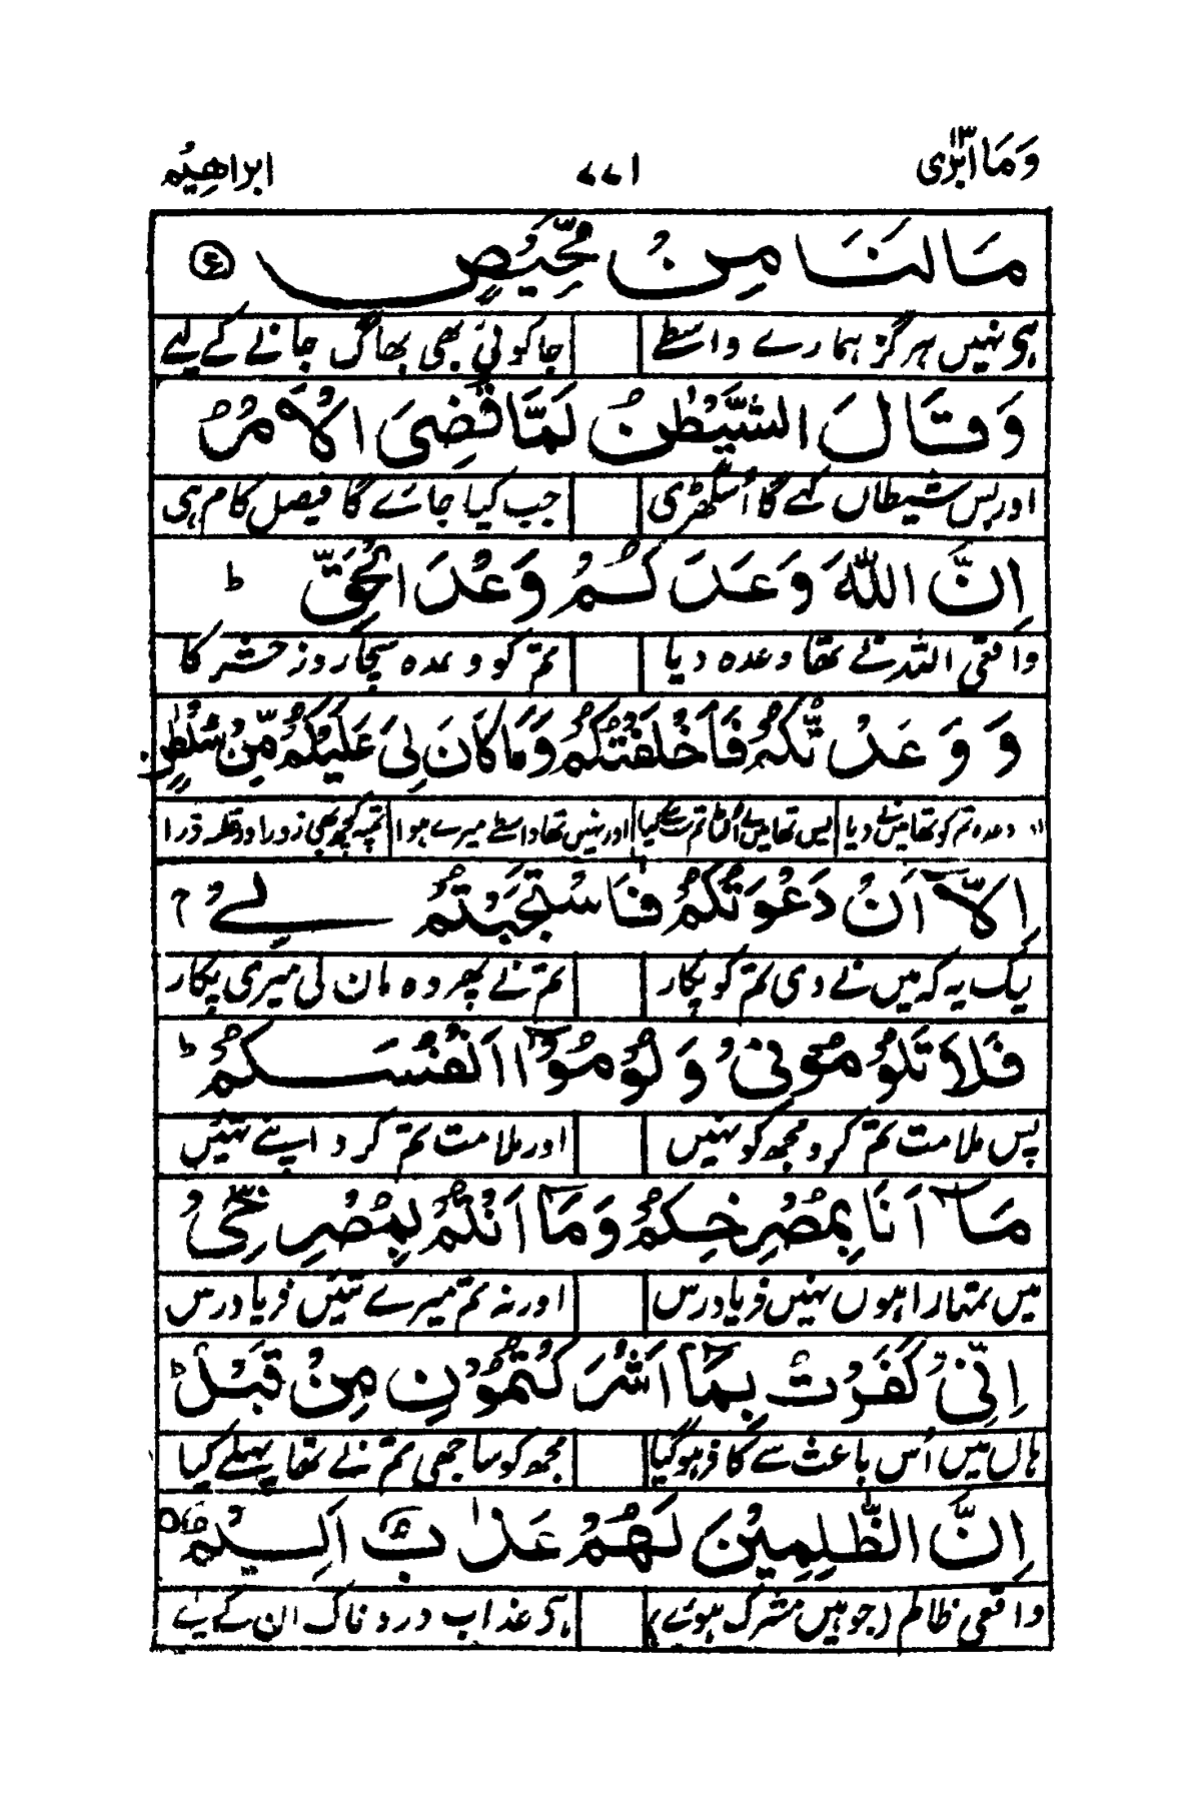 وَمَا اُبَرِّئُ ۱۳ ۷۷۱ ابراهِيْم
مَا لَنَا مِنْ مَّحِيْصٍ
ہی نہیں ہرگز ہمارے واسطے جا کوئی بھی بھاگ جانے کے لیے
وَقَالَ الشَّيْطٰنُ لَمَّا قُضِىَ الْاَمْرُ
اور بس شیطاں کہے گا اُس گھڑی جب کیا جائے گا فیصل کام ہی
اِنَّ اللّٰهَ وَعَدَكُمْ وَعْدَ الْحَقِّ ط
واقعی اللہ نے تھا وعدہ دیا تم کو وعدہ سچا روز حشر کا
وَ وَعَدْتُّكُمْ فَاَخْلَفْتُكُمْ وَمَا كَانَ لِىَ عَلَيْكُمْ مِّنْ سُلْطٰنٍ
وعدہ تم کو تھا میں نے دیا پس تھا میں نے اُلٹا تم سے کیا اور نہیں تھا واسطے میرے ہوا تم پہ کچھ بھی زور اور غلبہ ذرا
اِلَّآ اَنْ دَعَوْتُكُمْ فَاسْتَجَبْتُمْ لِىْ
لیک یہ کہ میں نے دی تم کو پکار تم نے پھر وہ مان لی میری پکار
فَلَا تَلُوْمُوْنِىْ وَ لُوْمُوْٓا اَنْفُسَكُمْ ط
پس ملامت تم کرو مجھ کو نہیں اور ملامت تم کرو اپنے تئیں
مَآ اَنَا بِمُصْرِخِكُمْ وَمَآ اَنْتُمْ بِمُصْرِخِىَّ
میں تمہارا ہوں نہیں فریادرس اور نہ تم میرے تئیں فریادرس
اِنِّىْ كَفَرْتُ بِمَآ اَشْرَكْتُمُوْنِ مِنْ قَبْلُ ط
ہاں میں اُس باعث سے کافر ہو گیا مجھ کو ساجھی تم نے تھا پہلے کیا
اِنَّ الظّٰلِمِيْنَ لَهُمْ عَذَابٌ اَلِيْمٌ
واقعی ظالم (جو ہیں مشرک ہوئے) ہے عذاب دردناک ان کے لیے